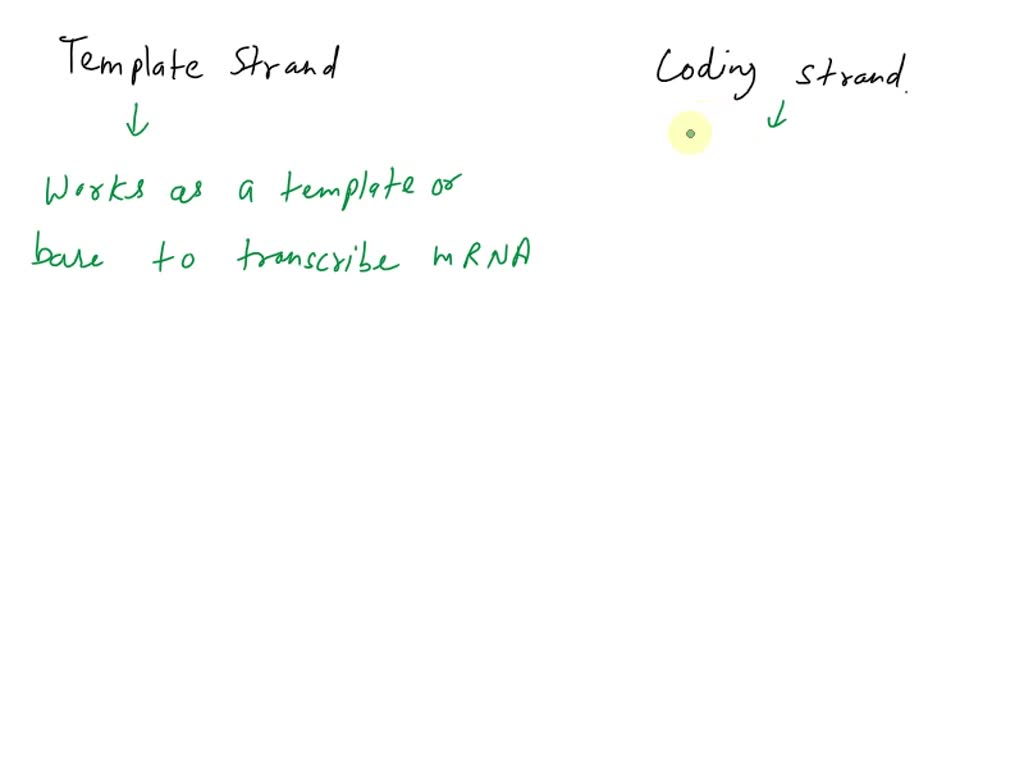 Template Strand
Coding strand.
↓
↓
Works as a template or
base to transcribe mRNA